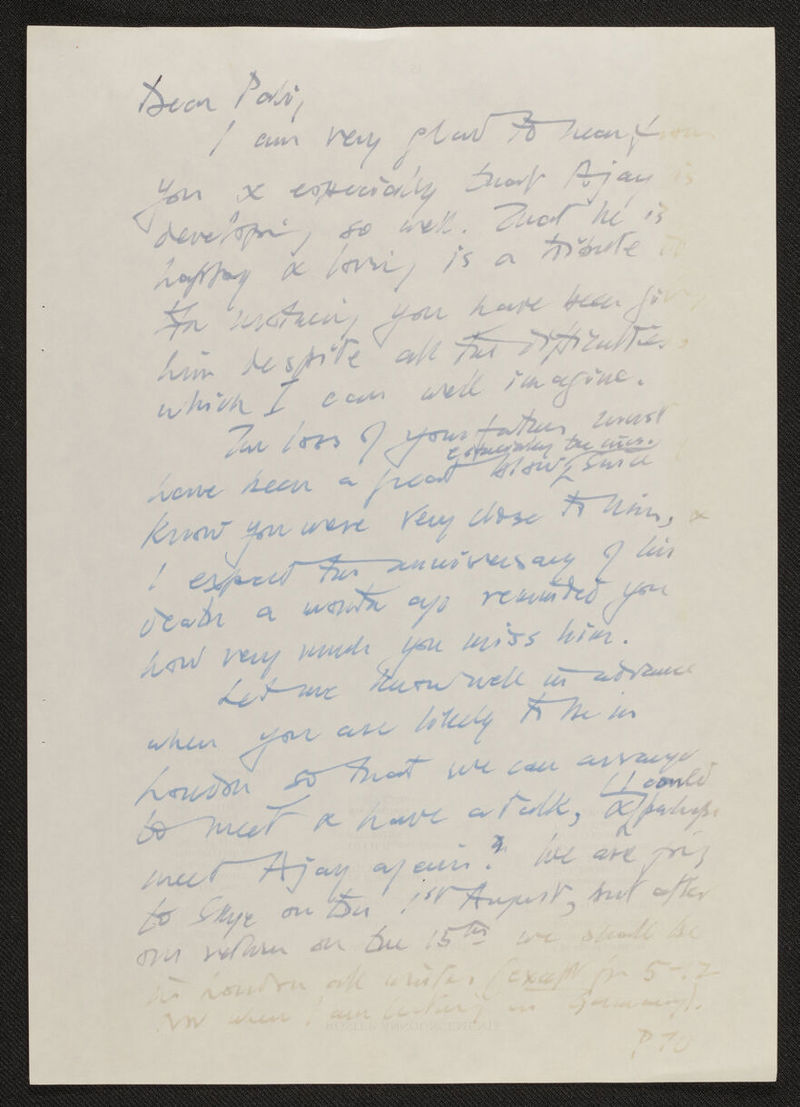 Dear Pabi,
I am very glad to hear from
you & especially that Ajay is
developing so well. That he is
happy & loving is a tribute to
the mothering you have been giving
him despite all the difficulties
which I can well imagine.
The loss of your father must
have been a great blow, especially too since I
know you were very close to him, &
I expect the anniversary of his
death a month ago reminded you
how very much you miss him.
Let me know well in advance
when you are likely to be in
London so that we can arrange
to meet & have a talk, & perhaps I could
meet Ajay again? We are going
to Skye on the 1st August, but after
our return on the 15th we shall be
in London all winter (except for 5-12
Nov when I am lecturing in Germany).
PTO